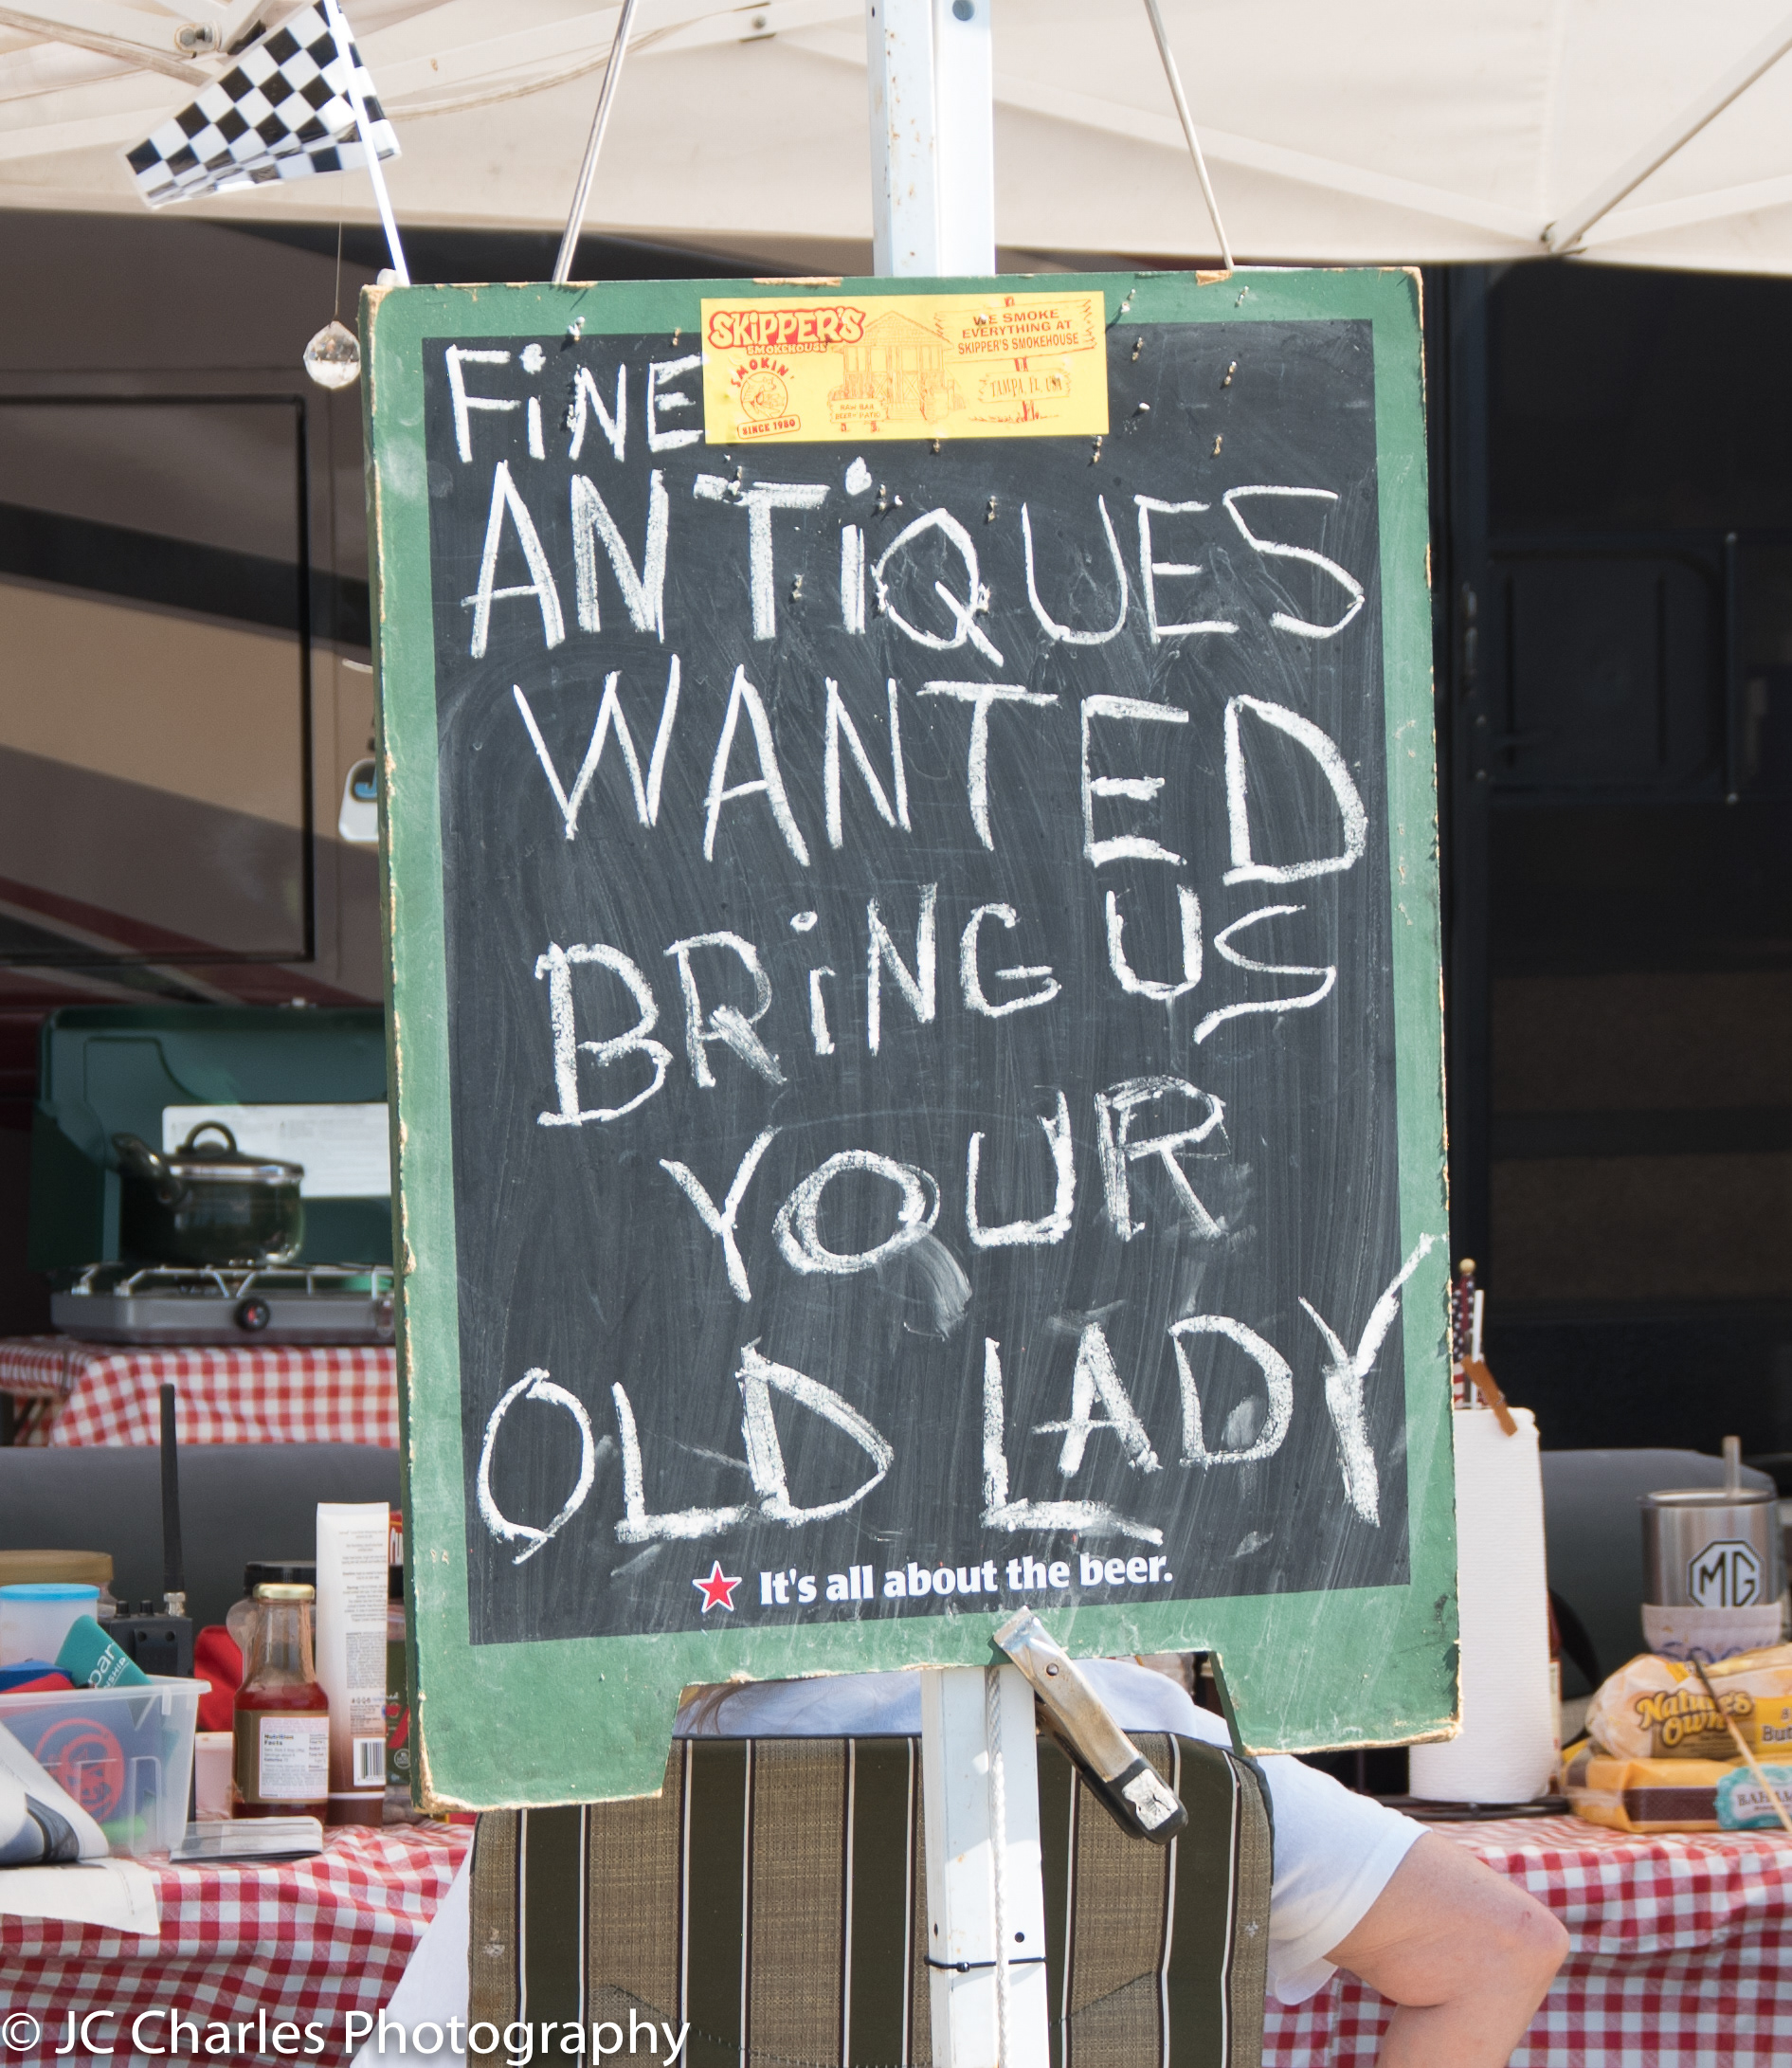 SKiPPER'S
SMOKEHOUSE
SMOKIN'
SINCE 1980
RAW BAR
BEER PATIO
WE SMOKE
EVERYTHING AT
SKIPPER'S SMOKEHOUSE
TAMPA, FL USA
FiNE
ANTiQUES
WANTED
BRiNG US
YOUR
OLD LADY
It's all about the beer.
MG
Nature's
Own
Nutrition
Facts
© JC Charles Photography